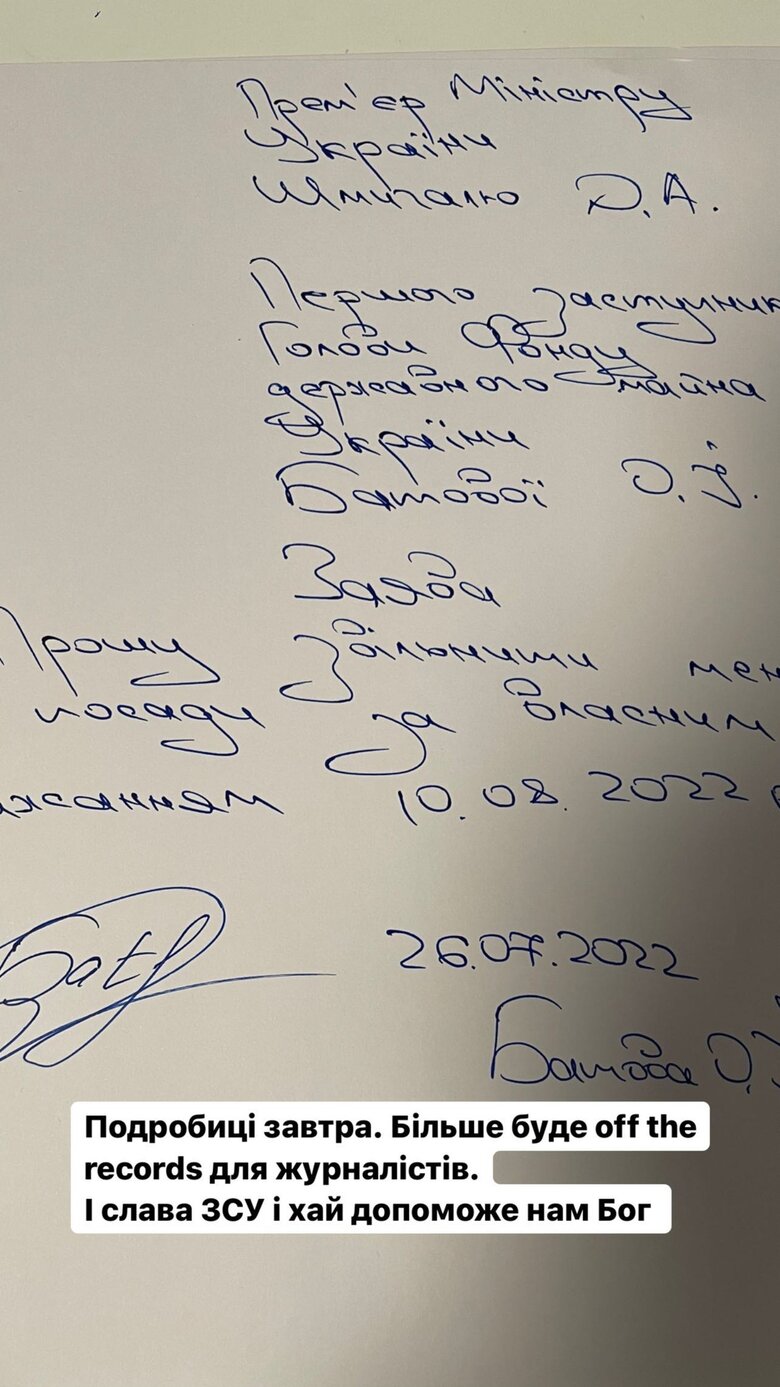 Прем'єр Міністру
України
Шмигалю Д.А.
Першого Заступник
Голови Фонду
державного майна
України
Батової О.Ї.
Заява
Прошу звільнити мен
посади за власним
ажанням 10.08.2022
26.07.2022
Батова О.
Подробиці завтра. Більше буде off the
records для журналістів.
І слава ЗСУ і хай допоможе нам Бог